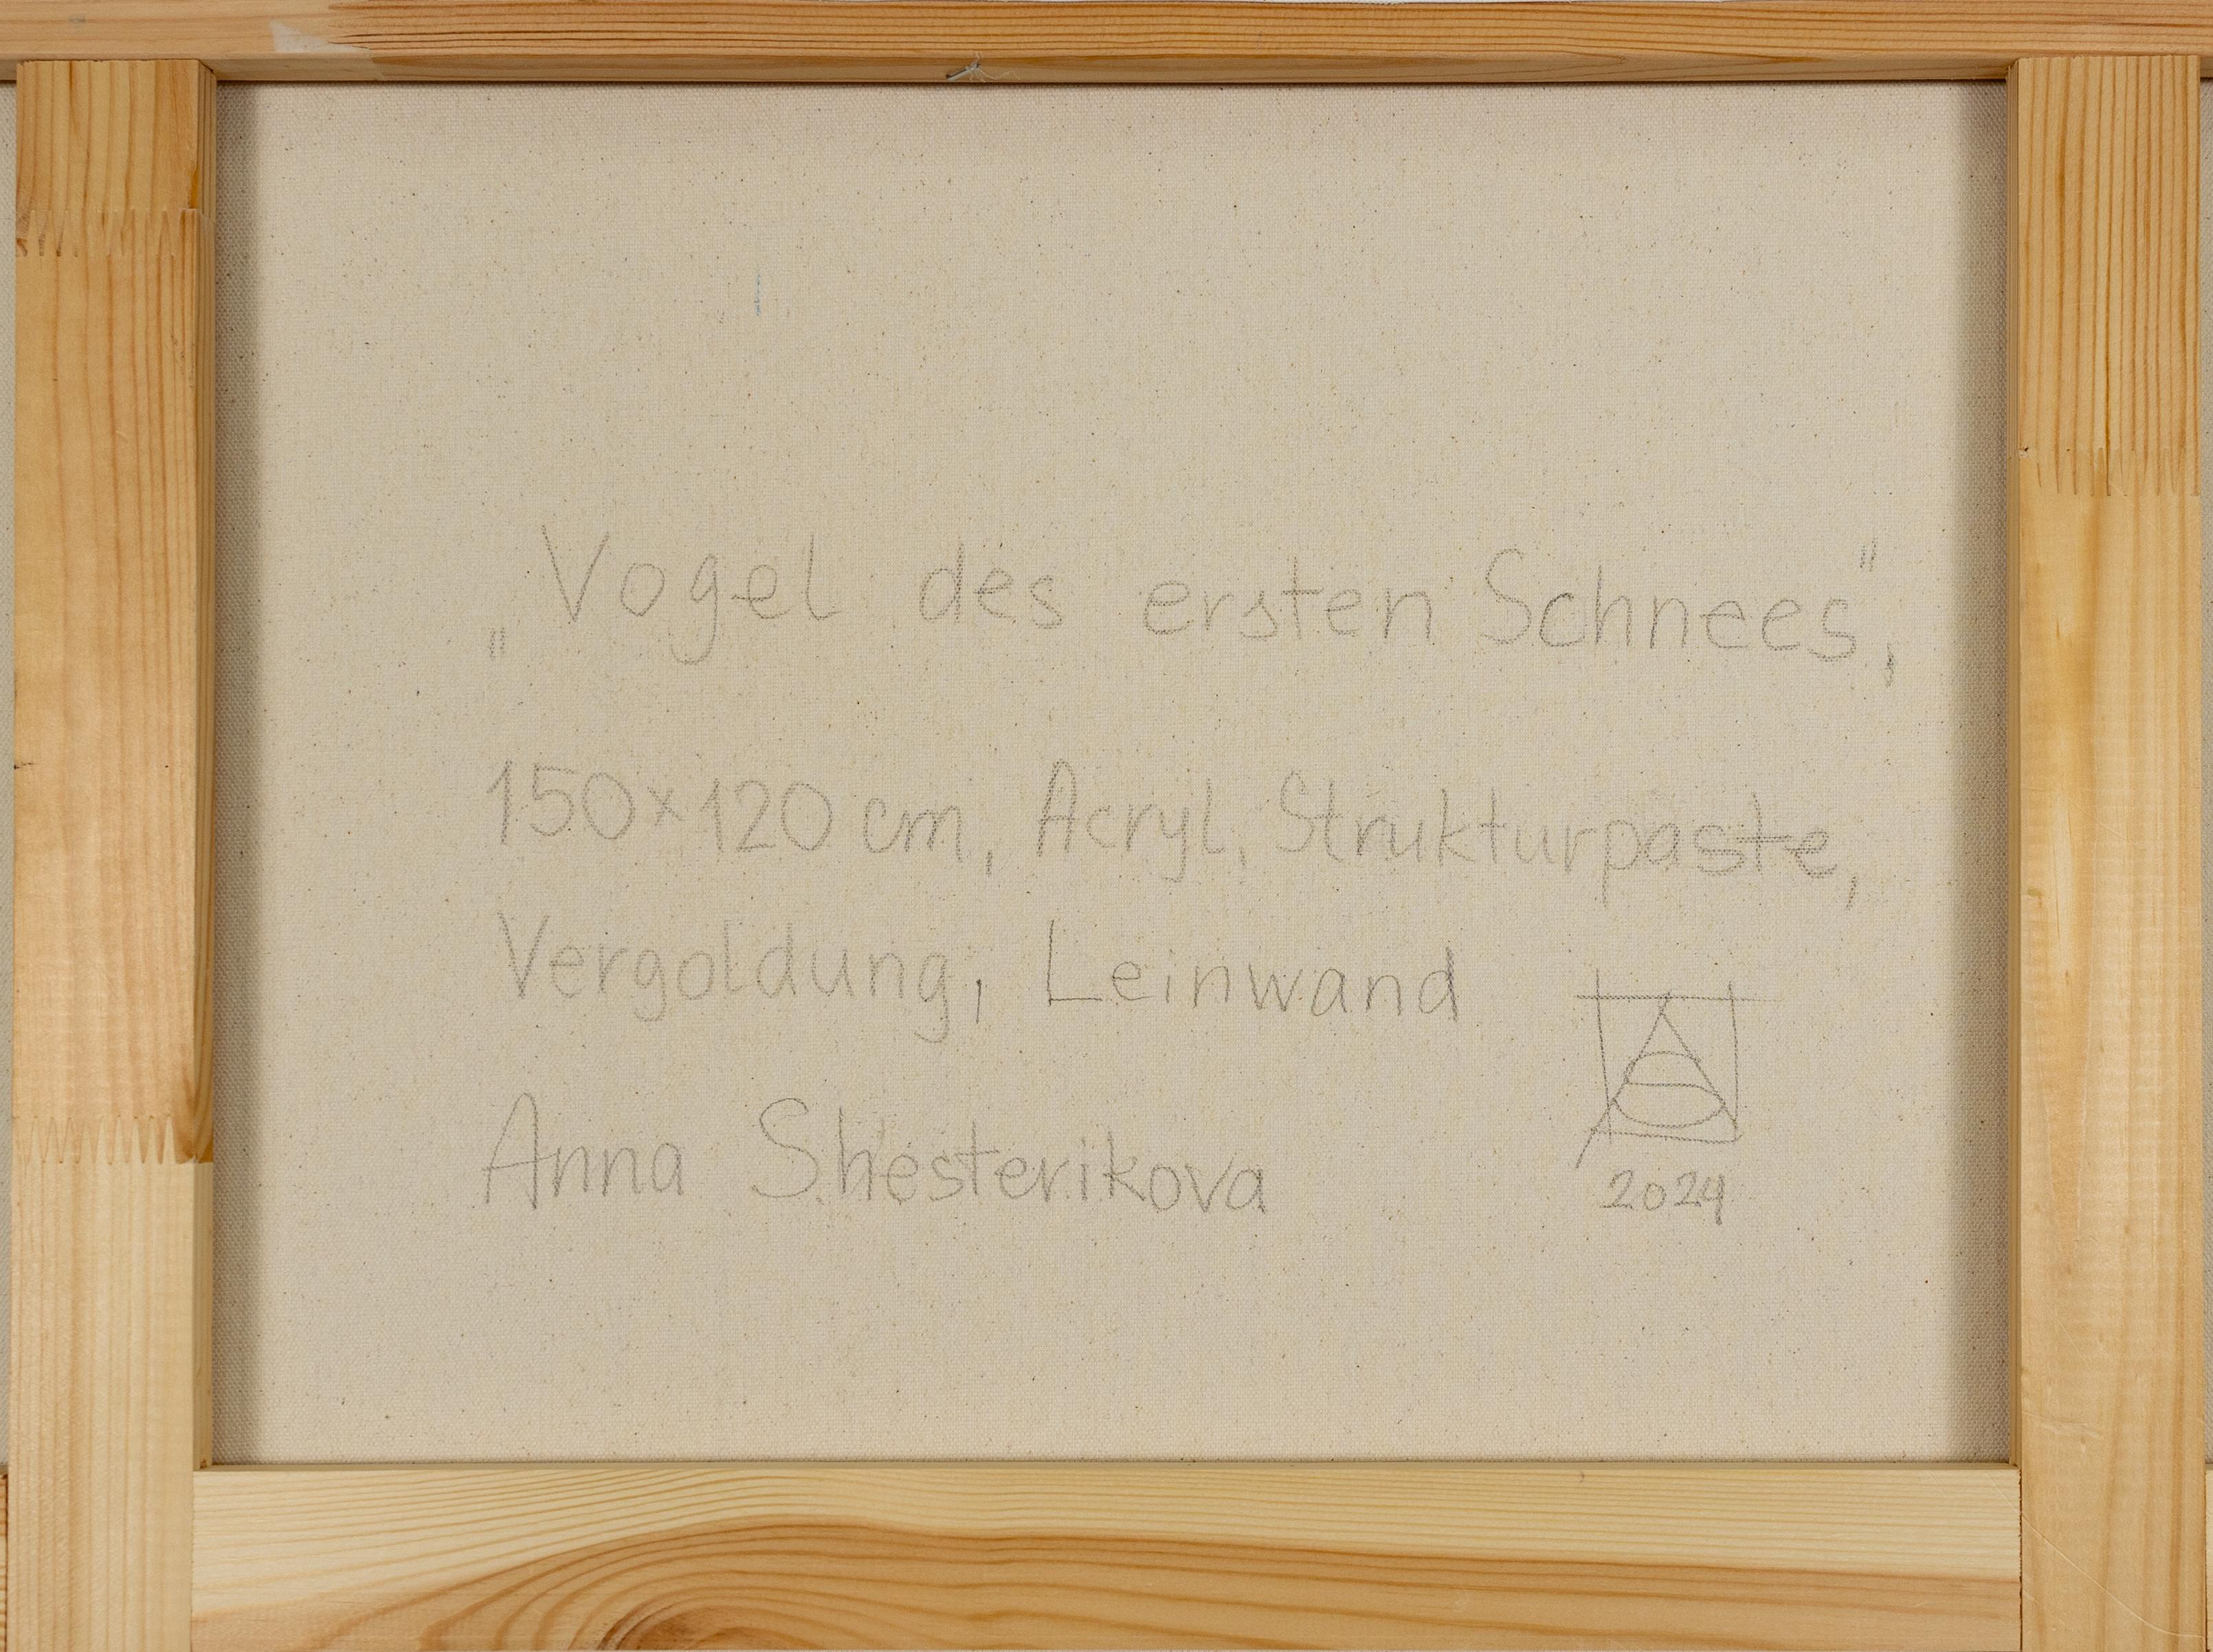 „Vogel des ersten Schnees",
150×120 cm, Acryl, Strukturpaste,
Vergoldung, Leinwand
Anna Shesterikova
2024